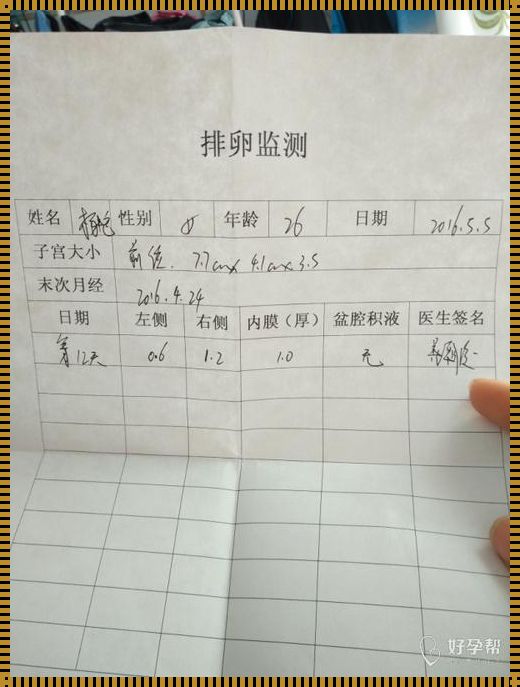 排卵监测
姓名 性别 女 年龄 26 日期 2016.5.5
子宫大小 前位. 7.7cm×4.1cm×3.5
末次月经 2016.4.24
日期 左侧 右侧 内膜（厚） 盆腔积液 医生签名
第12天 0.6 1.2 1.0 无
好孕帮